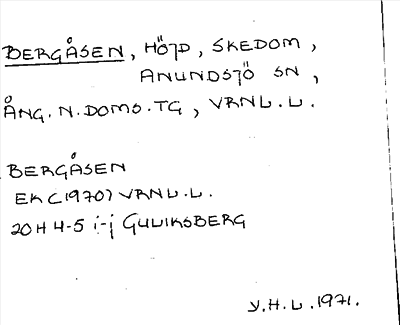 BERGÅSEN, HÖJD, SKEDOM,
ANUNDSJÖ SN,
ÅNG. N. DOMS. TG, VRNL. L.
BERGÅSEN
EK (1970) VRNL. L.
20 H 4-5 i-j GULIKSBERG
Y. H. L. 1971.